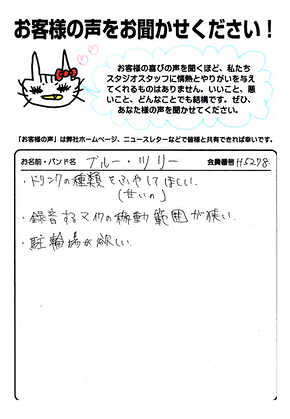 お客様の声をお聞かせください！
お客様の喜びの声を聞くほど、私たち
スタジオスタッフに情熱とやりがいを与え
てくれるものはありません。いいこと、悪
いこと、どんなことでも結構です。ぜひ、
あなた様の声を聞かせてください。
「お客様の声」は弊社ホームページ、ニュースレターなどで皆様と共有できれば幸いです。
お名前・バンド名 ブルー・ツリー 会員番号 H5278
・ドリンクの種類をふやしてほしい。
・録音するマイクの稼動範囲が狭い.
・駐輪場が欲しい